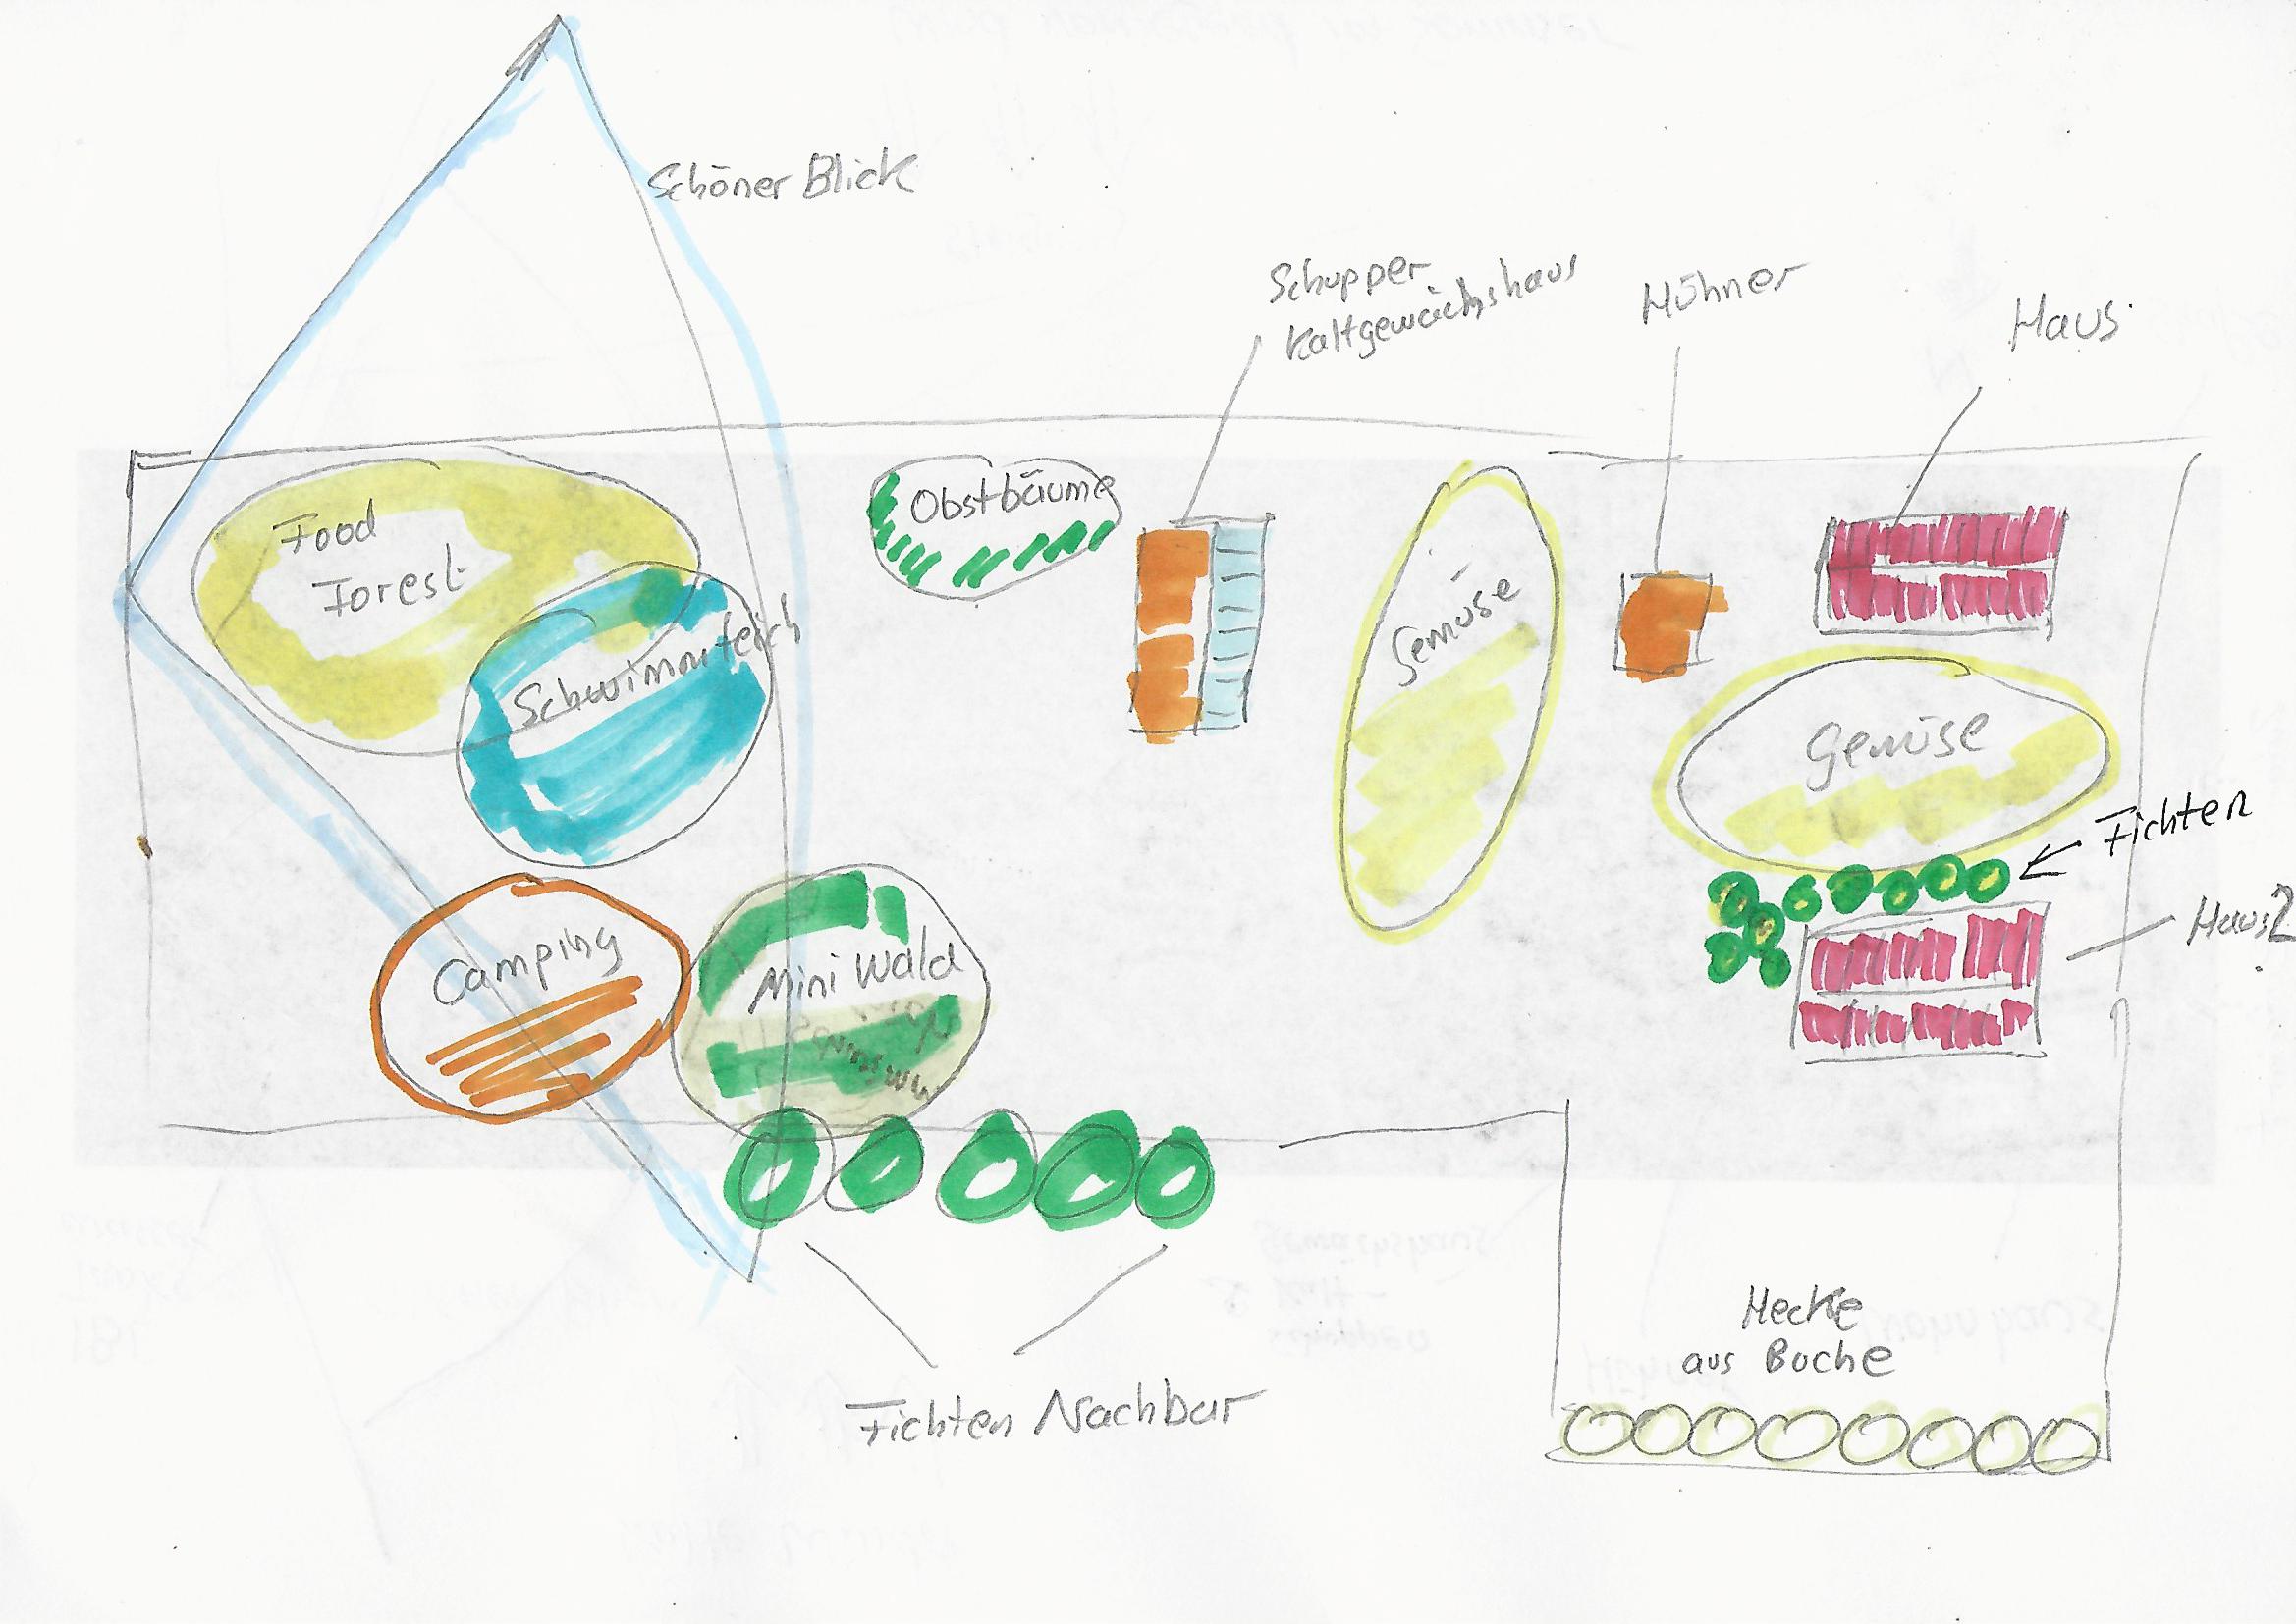 Schöner Blick
Schupper
Kaltgewächshaus
Hühner
Haus
Food
Forest
Obstbäume
Schwimmteich
Gemüse
Gemüse
Fichten
Haus 2
Camping
Mini Wald
Fichten Nachbar
Hecke
aus Buche